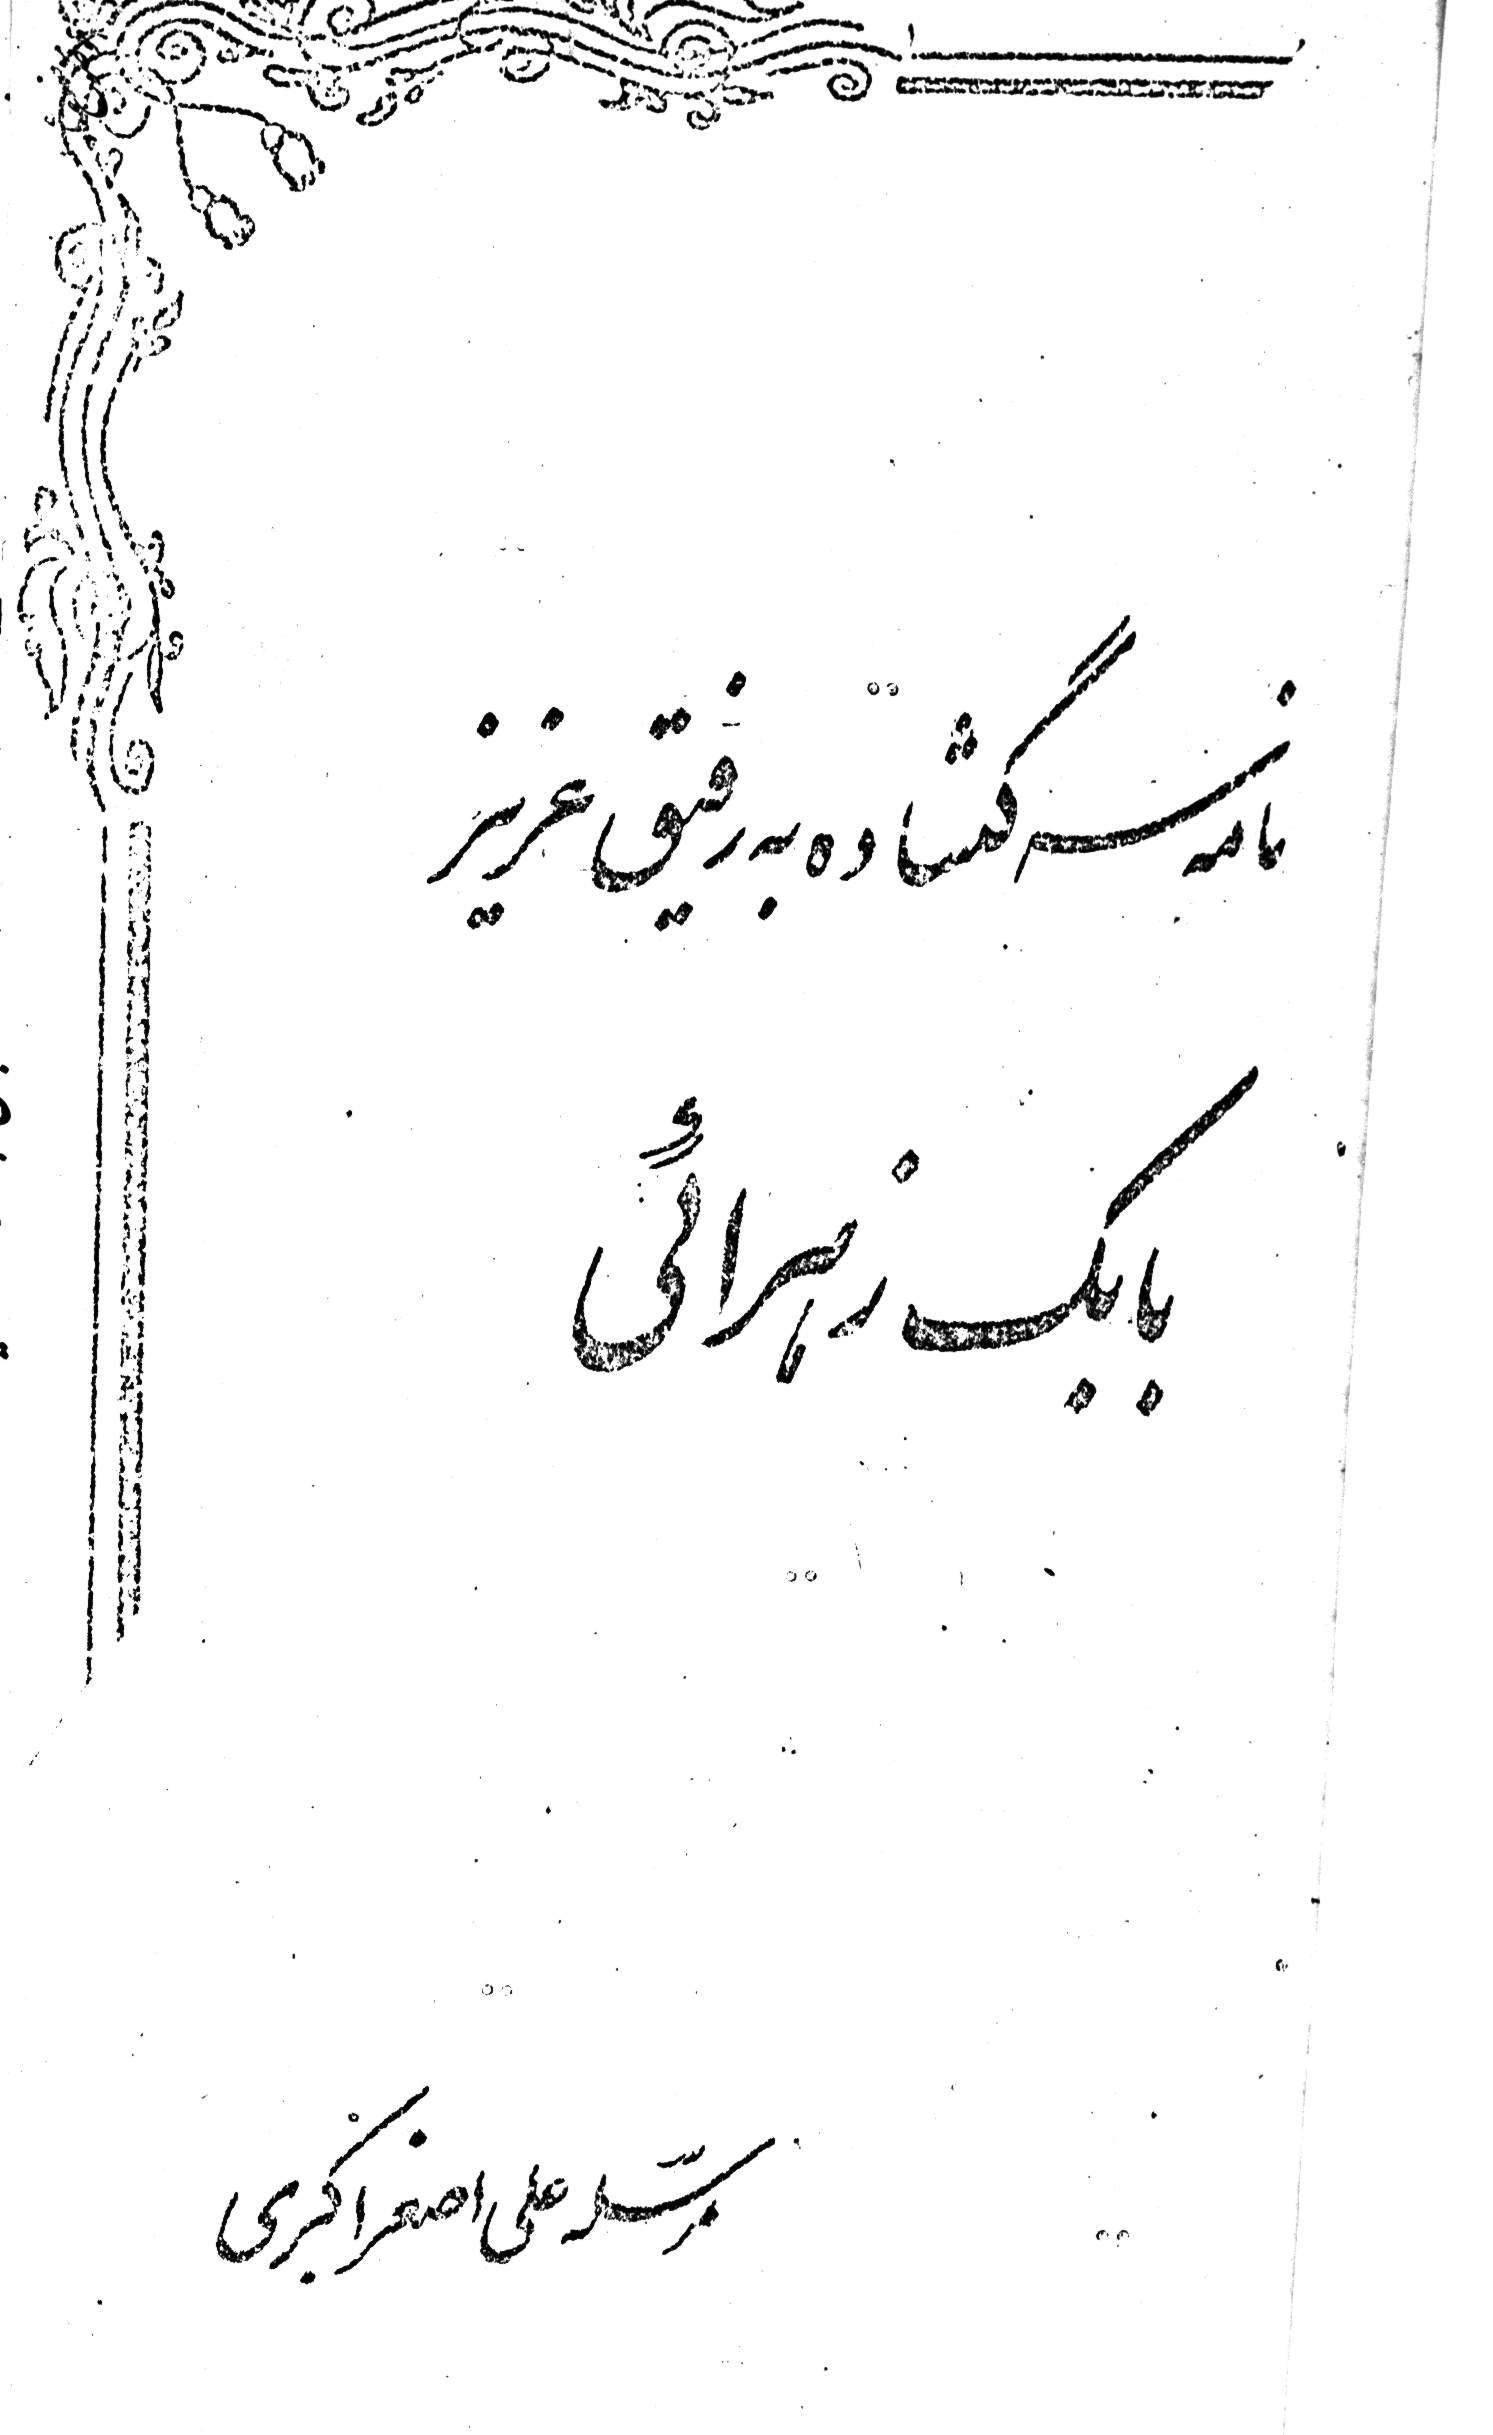 نامه سرگشاده به رفیق عزیز
بابک زهرائی
علی اصغر اکبری